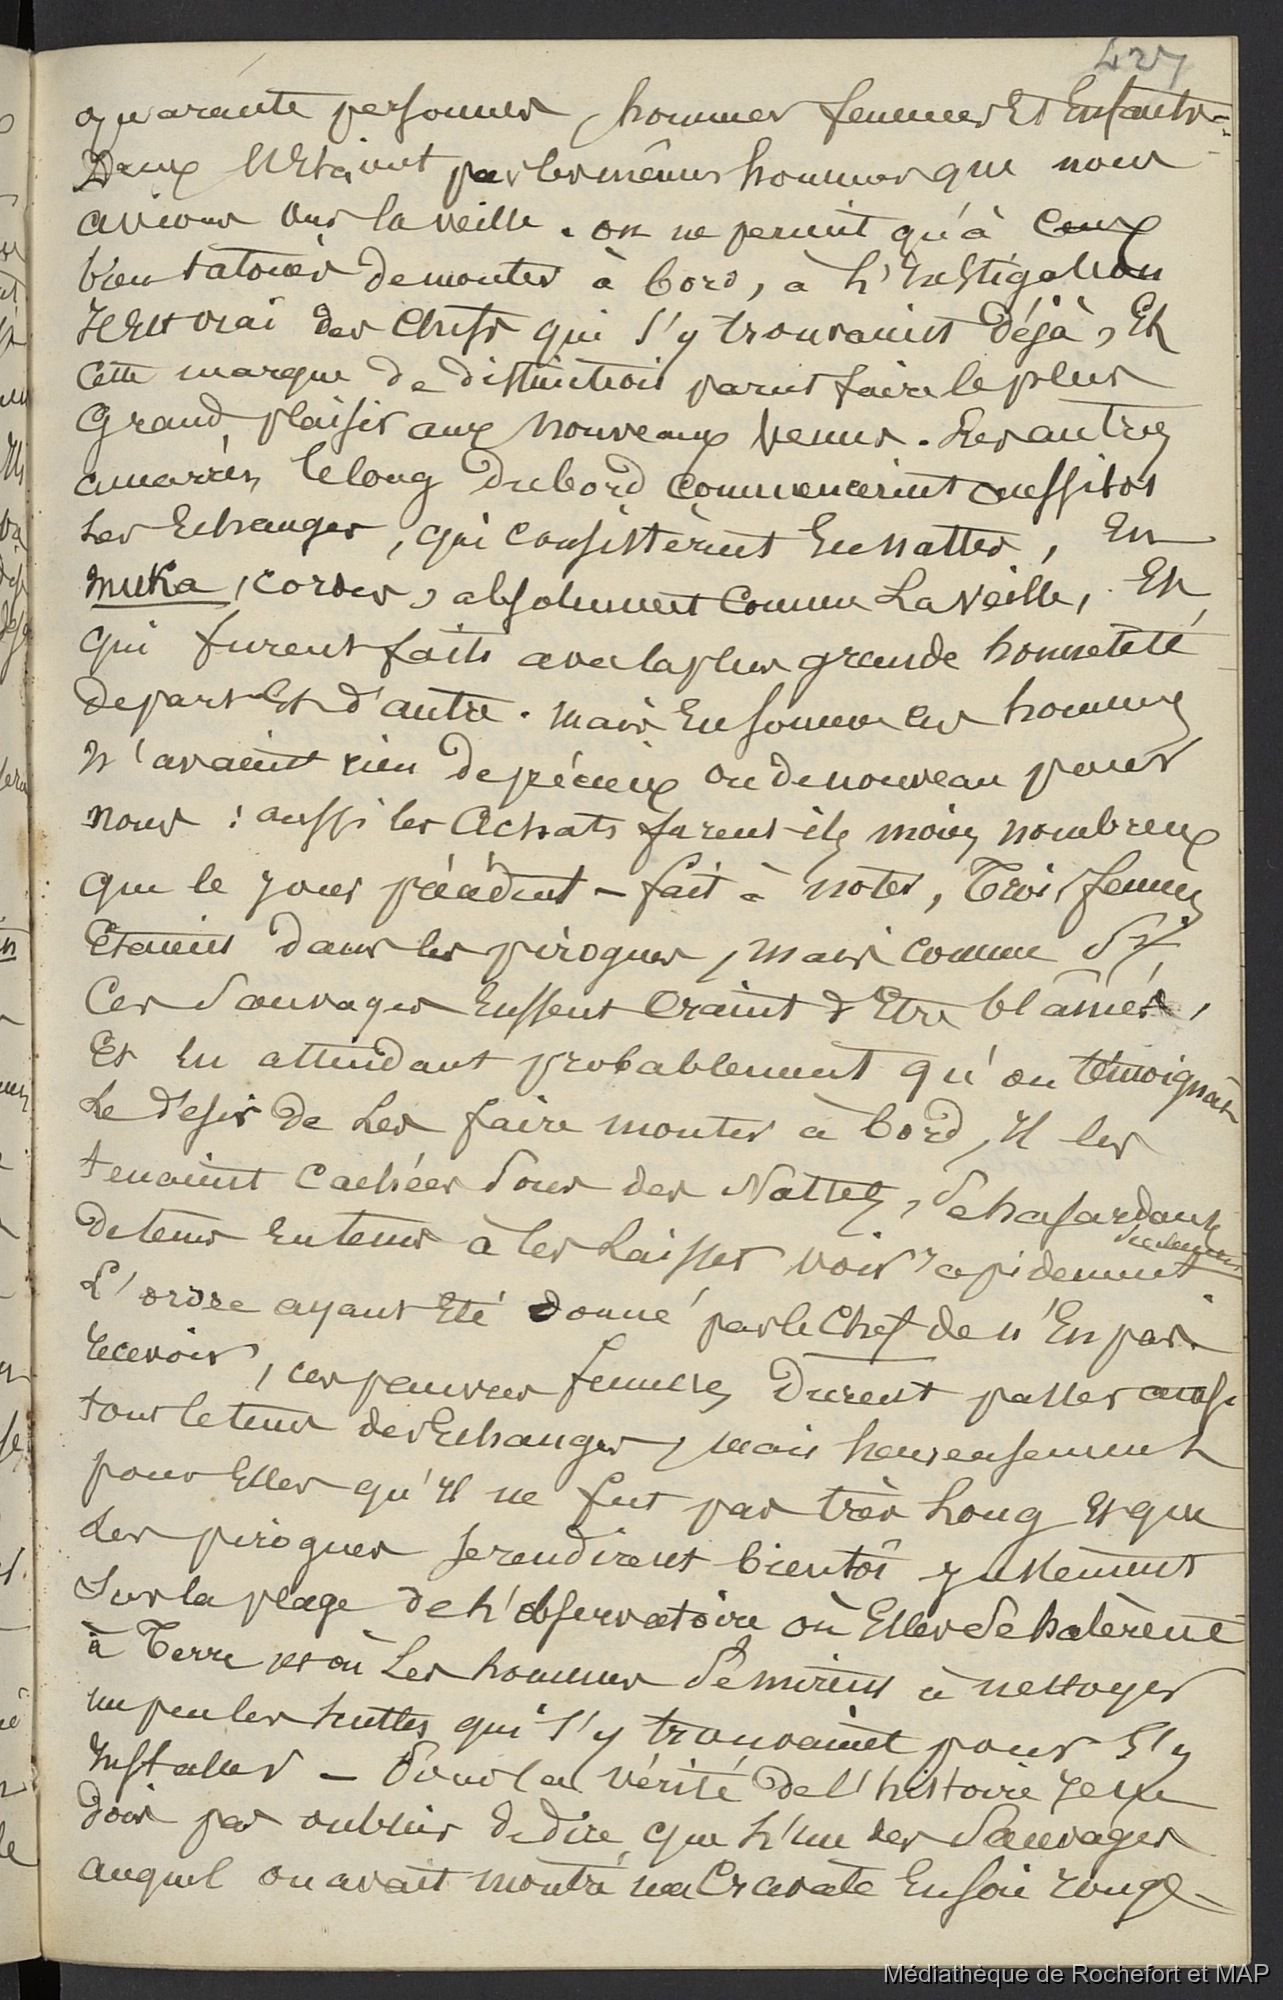 427
quarante personnes, hommes femmes Et Enfants -
Deux N'Etaient pas les mêmes hommes que nous
avions vus la veille. on ne permit qu'à ceux
bien tatoués de monter à bord, à l'Instigation
Il Est vrai des Chefs qui s'y trouvaient Déjà, Et
Cette marque de distinction parut faire le plus
Grand plaisir aux Nouveaux Venus. Les autres
amarrés, le long Du bord commencèrent aussitot
Les Echanges, qui consistèrent En nattes, En
muka, cordes, absolument comme La veille, Et
qui furent faits avec la plus grande honnêteté
de part Et d'autre. mais En somme ces hommes
N'avaient rien de précieux ou de nouveau pour
nous : aussi les Achats furent-ils moins nombreux
que le jour précédent - fait à noter, Trois femmes
Etaient dans les pirogues, mais comme Si
Ces Sauvages Eussent Craint d'Etre blâmés,
Et En attendant probablement qu'on témoignât
Le désir de Les faire monter à bord, Il les
tenaient Cachées Sous des Nattes, Se hasardant
seulement
De tems En tems à les Laisser voir rapidement.
L'ordre ayant Eté donné par le Chef de n'En pas
recevoir, ces pauvres femmes, Durent passer ainsi
tout le tems des Echanges, mais heureusement
pour Elles qu'Il ne fut pas très Long Et que
Les pirogues se rendirent bientôt justement
Sur la plage de L'observatoire où Elles Se halèrent
à Terre Et où Les hommes Se mirent à nettoyer
un peu les huttes qui s'y trouvaient pour S'y
Installer - Pour la vérité De l'histoire Je ne
dois pas oublier de dire que L'un des Sauvages
auquel on avait montré ma Cravate En soie rouge -
Médiathèque de Rochefort et MAP